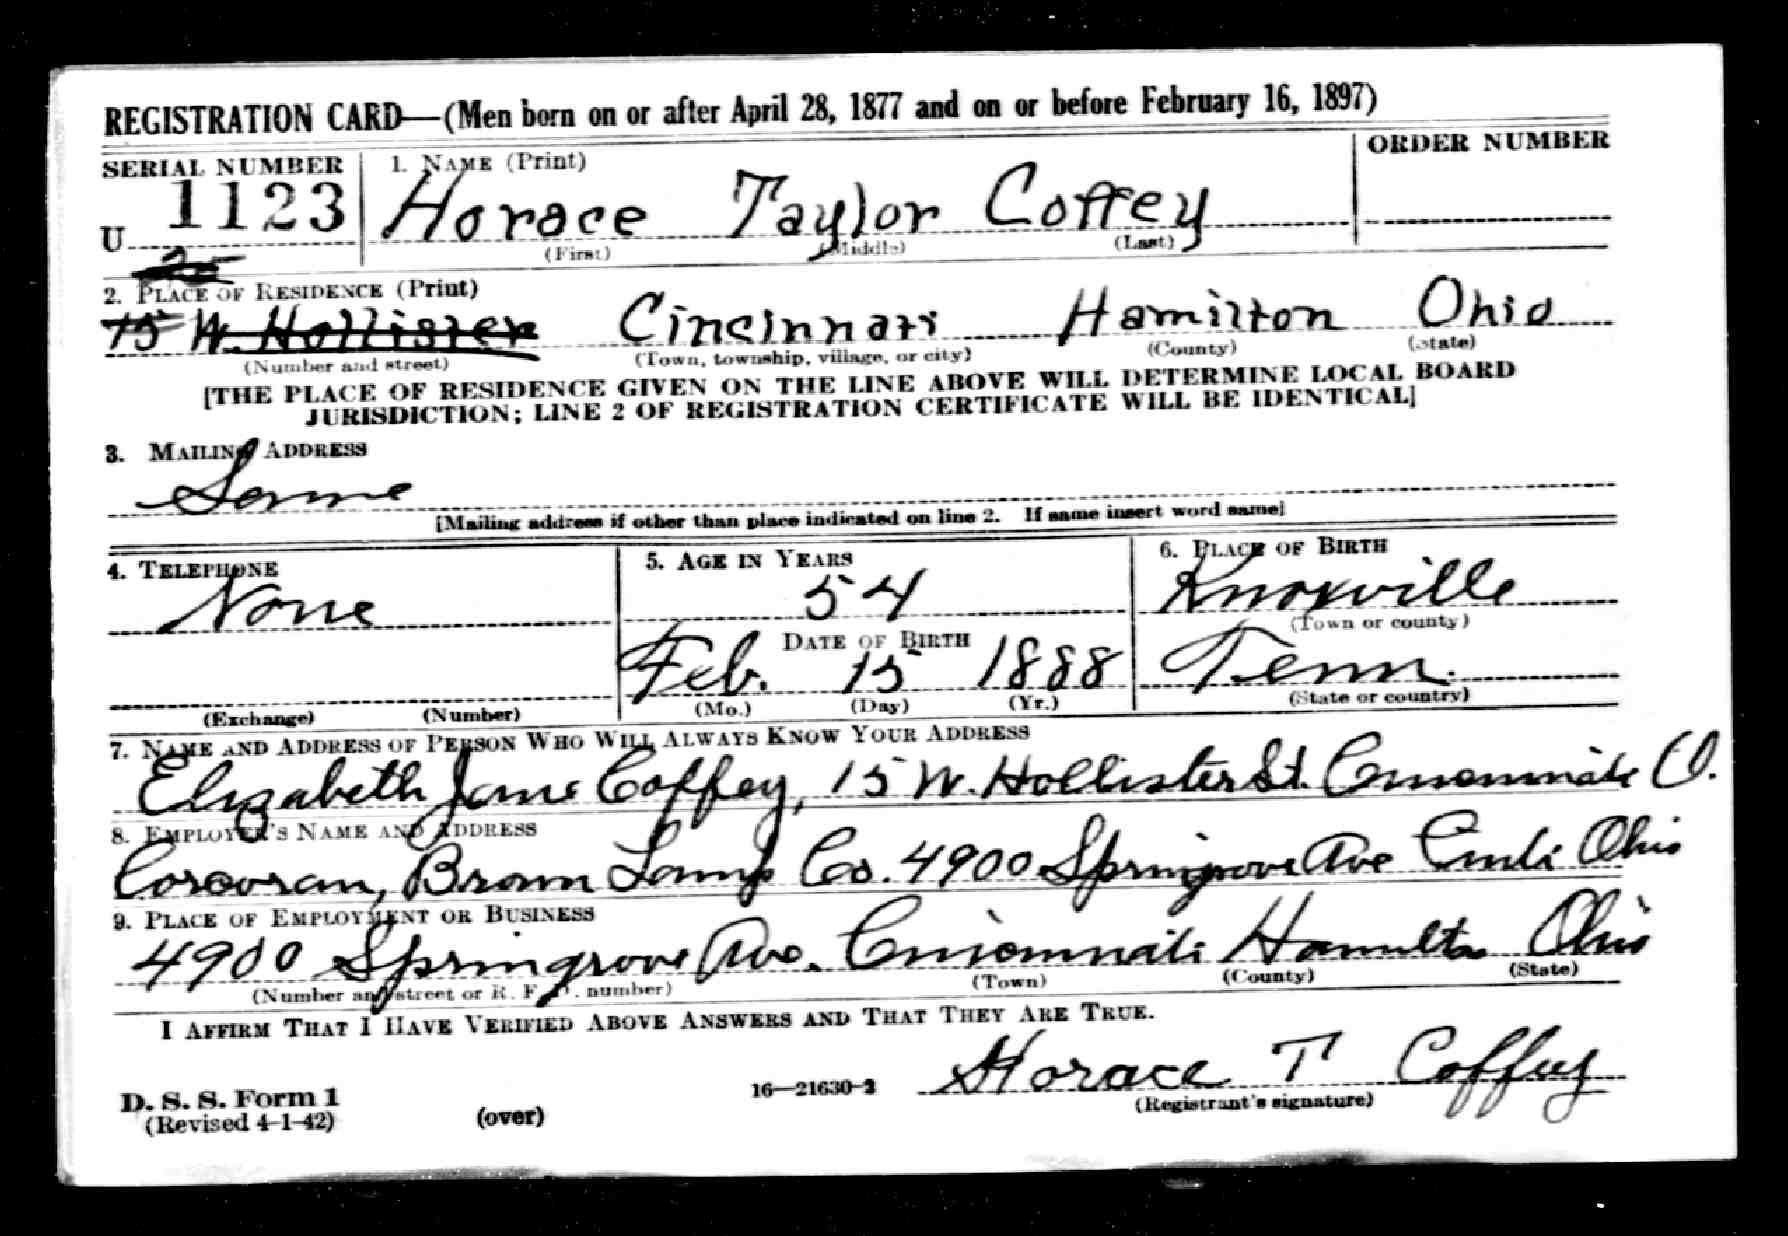 REGISTRATION CARD—(Men born on or after April 28, 1877 and on or before February 16, 1897)
SERIAL NUMBER
1. NAME (Print)
ORDER NUMBER
U 1123
Horace Taylor Coffey
(First) (Middle) (Last)
2. PLACE OF RESIDENCE (Print)
15 W. Hollister Cincinnati Hamilton Ohio
(Number and street) (Town, township, village, or city) (County) (State)
[THE PLACE OF RESIDENCE GIVEN ON THE LINE ABOVE WILL DETERMINE LOCAL BOARD
JURISDICTION; LINE 2 OF REGISTRATION CERTIFICATE WILL BE IDENTICAL]
3. MAILING ADDRESS
Same
[Mailing address if other than place indicated on line 2. If same insert word same]
4. TELEPHONE
None
(Exchange) (Number)
5. AGE IN YEARS
54
DATE OF BIRTH
Feb. 15 1888
(Mo.) (Day) (Yr.)
6. PLACE OF BIRTH
Knoxville
(Town or county)
Tenn.
(State or country)
7. NAME AND ADDRESS OF PERSON WHO WILL ALWAYS KNOW YOUR ADDRESS
Elizabeth Jane Coffey, 15 W. Hollister St. Cincinnati O.
8. EMPLOYER'S NAME AND ADDRESS
Corcoran, Brown Lamp Co. 4900 Springrove Ave Cinti Ohio
9. PLACE OF EMPLOYMENT OR BUSINESS
4900 Springrove Ave. Cincinnati Hamilton Ohio
(Number and street or R. F. D. number) (Town) (County) (State)
I AFFIRM THAT I HAVE VERIFIED ABOVE ANSWERS AND THAT THEY ARE TRUE.
Horace T Coffey
D. S. S. Form 1
(Revised 4-1-42)
(over)
16—21630-2
(Registrant's signature)